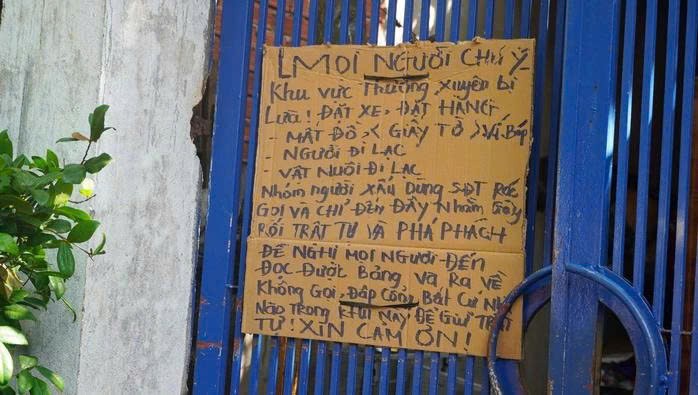 MỌI NGƯỜI CHÚ Ý
Khu vực Thường xuyên bị
Lừa! ĐẶT XE, ĐẶT HÀNG
- MẤT ĐỒ < GIẤY TỜ > Ví Bóp
- NGƯỜI ĐI LẠC
VẬT NUÔI ĐI LẠC
Nhóm người XẤU Dùng SĐT Rác
GỌI VÀ CHỈ ĐẾN ĐÂY Nhằm Gây
RỐI TRẬT TỰ VÀ PHÁ PHÁCH
ĐỀ NGHỊ MỌI NGƯỜI ĐẾN
ĐỌC ĐƯỢC BẢNG và RA VỀ
KHÔNG GỌI, ĐẬP CỔNG BẤT CỨ NHÀ
NÀO TRONG KHU NÀY ĐỂ GIỮ TRẬT
TỰ! XIN CẢM ƠN!